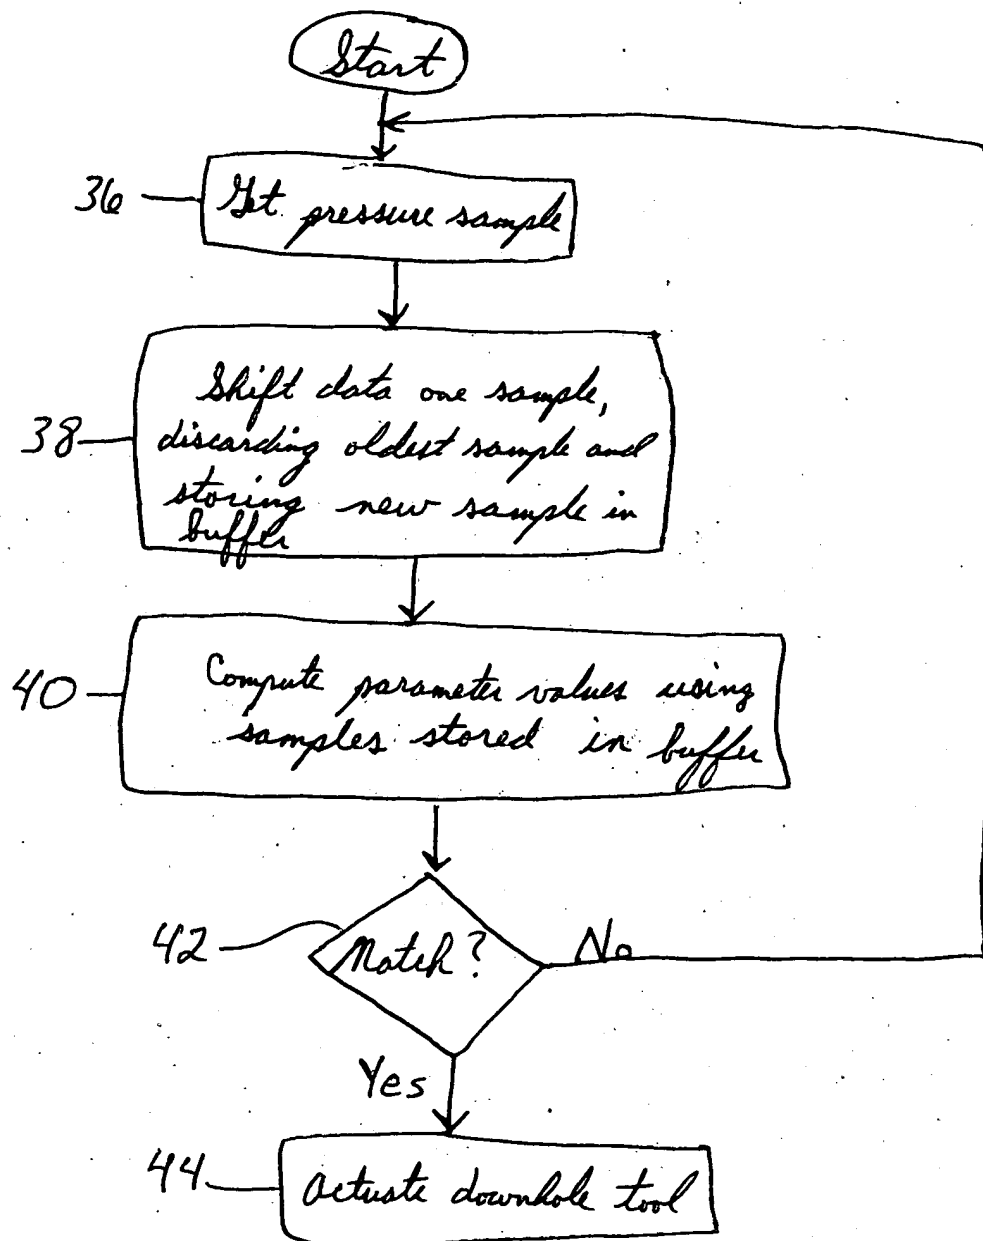 Start
36
Get pressure sample
Shift data one sample,
38
discarding oldest sample and
storing new sample in
buffer
40
Compute parameter values using
samples stored in buffer
42
Match?
No
Yes
44
Actuate downhole tool